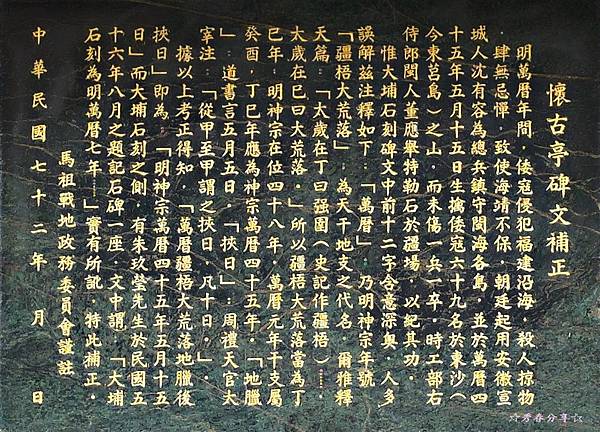 懷古亭碑文補正
明萬曆年間，倭寇侵犯福建沿海，殺人掠物
，肆無忌憚，致使海靖不保，朝廷起用安徽宣
城人沈有容為總兵鎮守閩海各島，並於萬曆四
十五年五月十五日生擒倭寇六十九名於東沙（
今東莒島）之山，而未傷一兵一卒。時工部右
侍郎閩人董應舉特勒石於疆場，以紀其功。
惟大埔石刻碑文中前十二字含意深奧，人多
誤解茲注釋如下：「萬曆」乃明神宗年號
「疆梧大荒落」，為天干地支之代名，爾雅釋
天篇：「太歲在丁曰强圉（史記作疆梧）……
太歲在巳曰大荒落。」所以疆梧大荒落當為丁
巳年，明神宗在位四十八年，萬曆元年干支屬
癸酉，丁巳年應為神宗萬曆四十五年。「地臘
」：道書言五月五日，「挾日」：周禮天官大
宰注：「從甲至甲謂之挾日，凡十日。」。
據以上考正得知，「萬曆疆梧大荒落地臘後
挾日」即為：「明神宗萬曆四十五年五月十五
日」而大埔石刻之側，有朱玖瑩先生於民國五
十六年八月之題記石碑一座，文中謂：「大埔
石刻為明萬曆七年……」實有所訛，特此補正。
馬祖戰地政務委員會謹註
中華民國七十二年　月　日
☆芳春分享☆